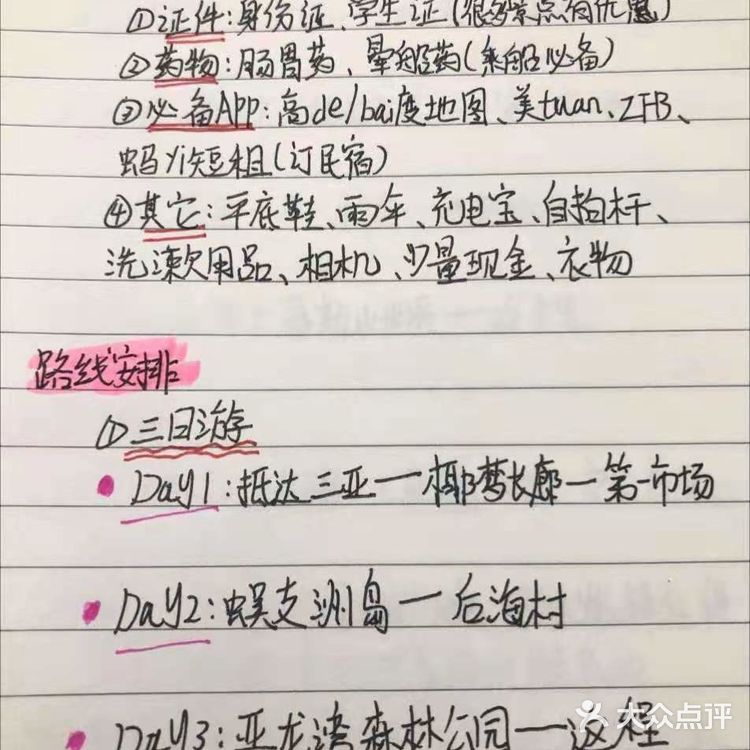 ①证件:身份证、学生证(很多景点有优惠)
②药物:肠胃药、晕船药(乘船必备)
③必备App:高de/bai度地图、美tuan、ZFB、
蚂yi短租(订民宿)
④其它:平底鞋、雨伞、充电宝、自拍杆、
洗漱用品、相机、少量现金、衣物
路线安排
①三日游
• Day1:抵达三亚一椰梦长廊一第一市场
• Day2:蜈支洲岛一后海村
Day3:亚龙湾森林公园一返程
大众点评